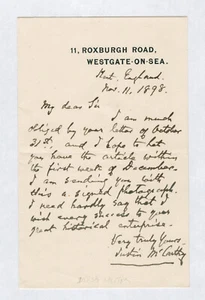 11, ROXBURGH ROAD,
WESTGATE-ON-SEA.
Kent, England.
Nov. 11. 1898.
My dear Sir
I am much
obliged by your letter of October
21st, and I hope to let
you have the article within
the first week of December.
I am sending you with
this a signed photograph.
I need hardly say that I
wish every success to your
great historical enterprise.
Very truly yours.
Justin McCarthy